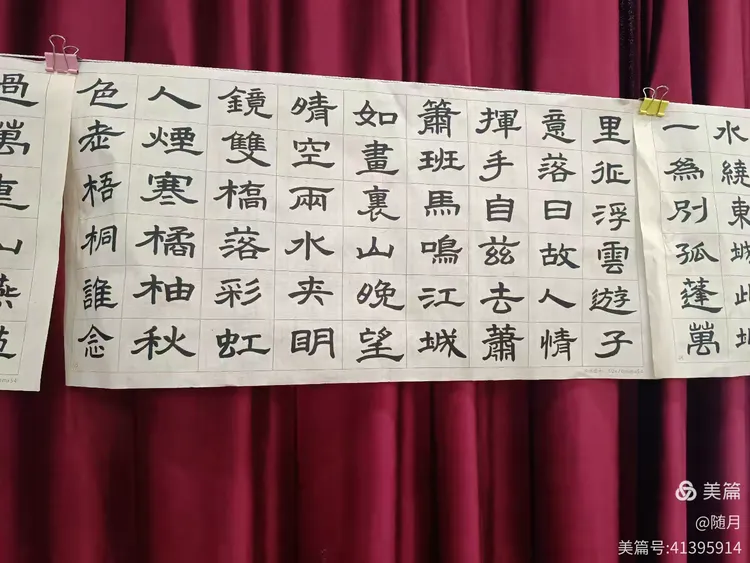 水繞東城此地
一為別孤蓬萬
里征浮雲遊子
意落日故人情
揮手自茲去蕭
簫班馬鳴江城
如畫裏山晚望
晴空兩水夾明
鏡雙橋落彩虹
人煙寒橘柚秋
色老梧桐誰念
過萬重山燕
美篇
@随月
美篇号:41395914